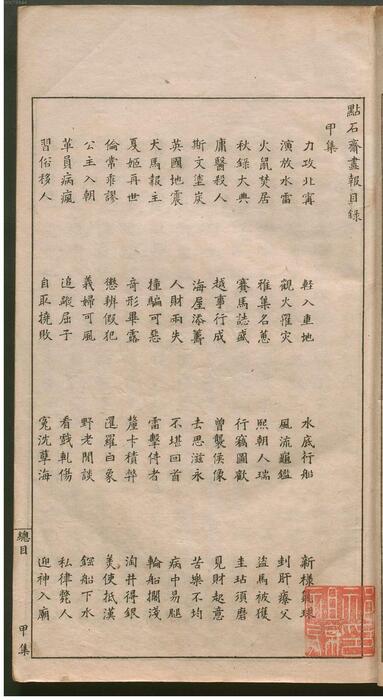 點石齋畫報目錄
甲集
力攻北甯 輕入重地 水底行船 新樣氣球
演放水雷 觀火罹災 風流龜鑑 刲肝療父
火鼠焚居 雅集名蕙 熙朝人瑞 盜馬被獲
秋錄大典 賽馬誌盛 行竊圖歡 圭玷須磨
庸醫殺人 越事行成 曾襲侯像 見財起意
斯文塗炭 海屋添籌 去思滋永 苦樂不均
英國地震 人財兩失 不堪回首 病中易腿
犬馬報主 撞騙可惡 雷擊侍者 輪船擱淺
夏姬再世 奇形畢露 釐卡積弊 淘井得銀
倫常乖謬 懲辦假犯 暹羅白象 美使抵漢
公主入朝 義婦可風 野老閒談 船下水
革員病瘋 追蹤屈子 看戲軋傷 私律斃人
習俗移人 自取撓敗 冤沈孽海 迎神入廟
總目 甲集